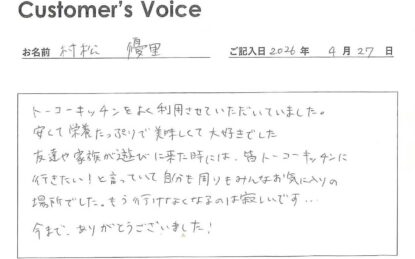 Customer's Voice
お名前 村松 優里 ご記入日 2026 年 4 月 27 日
トーコーキッチンをよく利用させていただいていました。
安くて栄養たっぷりで美味しくて大好きでした
友達や家族が遊びに来た時には、皆トーコーキッチンに
行きたい!と言っていて自分も周りもみんなお気に入りの
場所でした。もう行けなくなるのは寂しいです…
今まで、ありがとうございました!